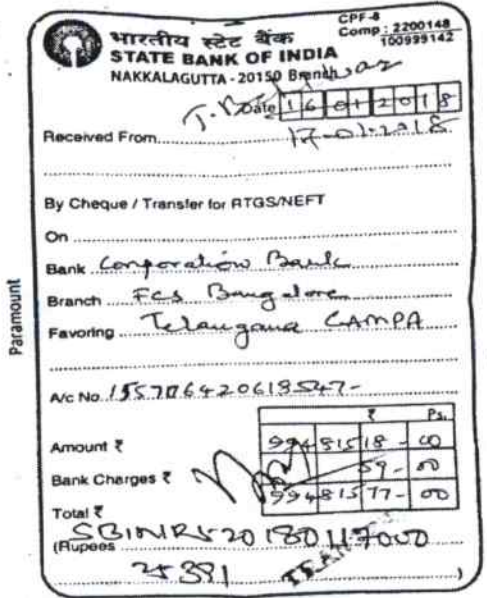 CPF-8
Comp : 2200148
100999142
भारतीय स्टेट बैंक
STATE BANK OF INDIA
NAKKALAGUTTA - 20150 Branch
Date 16 01 2018
17-01-2018
Received From
By Cheque / Transfer for RTGS/NEFT
On
Bank Corporation Bank
Branch FCS Bangalore
Favoring Telangana CAMPA
Paramount
A/c No. 155706420618547-
₹ Ps.
Amount ₹ 99481518 - 00
Bank Charges ₹ 59 - 00
Total ₹ 99481577 - 00
(Rupees SBINR520180117000
25391 )